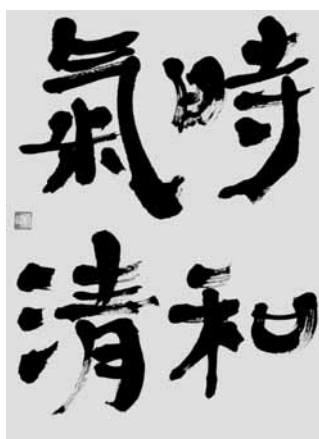 時和
氣清